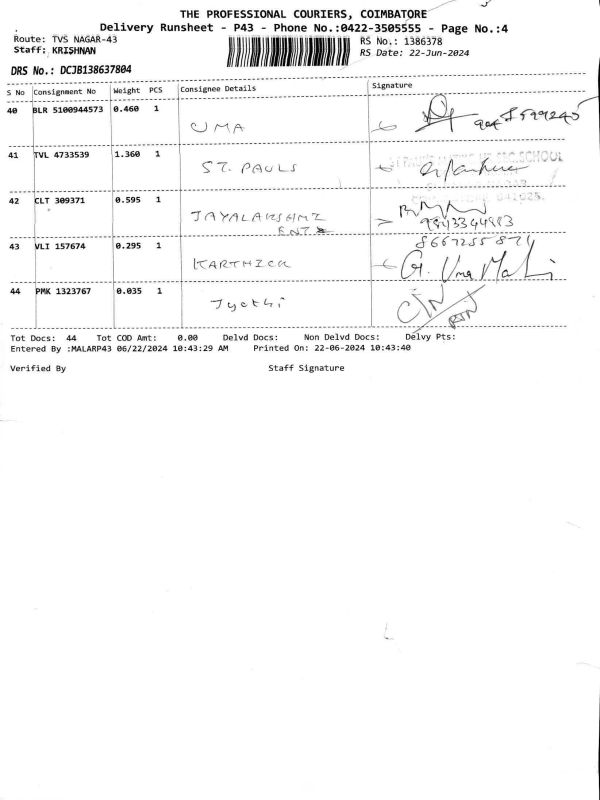 THE PROFESSIONAL COURIERS, COIMBATORE
Delivery Runsheet - P43 - Phone No.:0422-3505555 - Page No.:4
Route: TVS NAGAR-43 RS No.: 1386378
Staff: KRISHNAN RS Date: 22-Jun-2024
DRS No.: DCJB138637804
S No Consignment No Weight PCS Consignee Details Signature
40 BLR 5100944573 0.460 1 UMA
41 TVL 4733539 1.360 1 ST. PAULS
42 CLT 309371 0.595 1 JAYALAKSHMI
ENT 9843344983
8667255871
43 VLI 157674 0.295 1 KARTHICK G. Uma Ma
44 PMK 1323767 0.035 1 Jyothi
Tot Docs: 44 Tot COD Amt: 0.00 Delvd Docs: Non Delvd Docs: Delvy Pts:
Entered By :MALARP43 06/22/2024 10:43:29 AM Printed On: 22-06-2024 10:43:40
Verified By Staff Signature